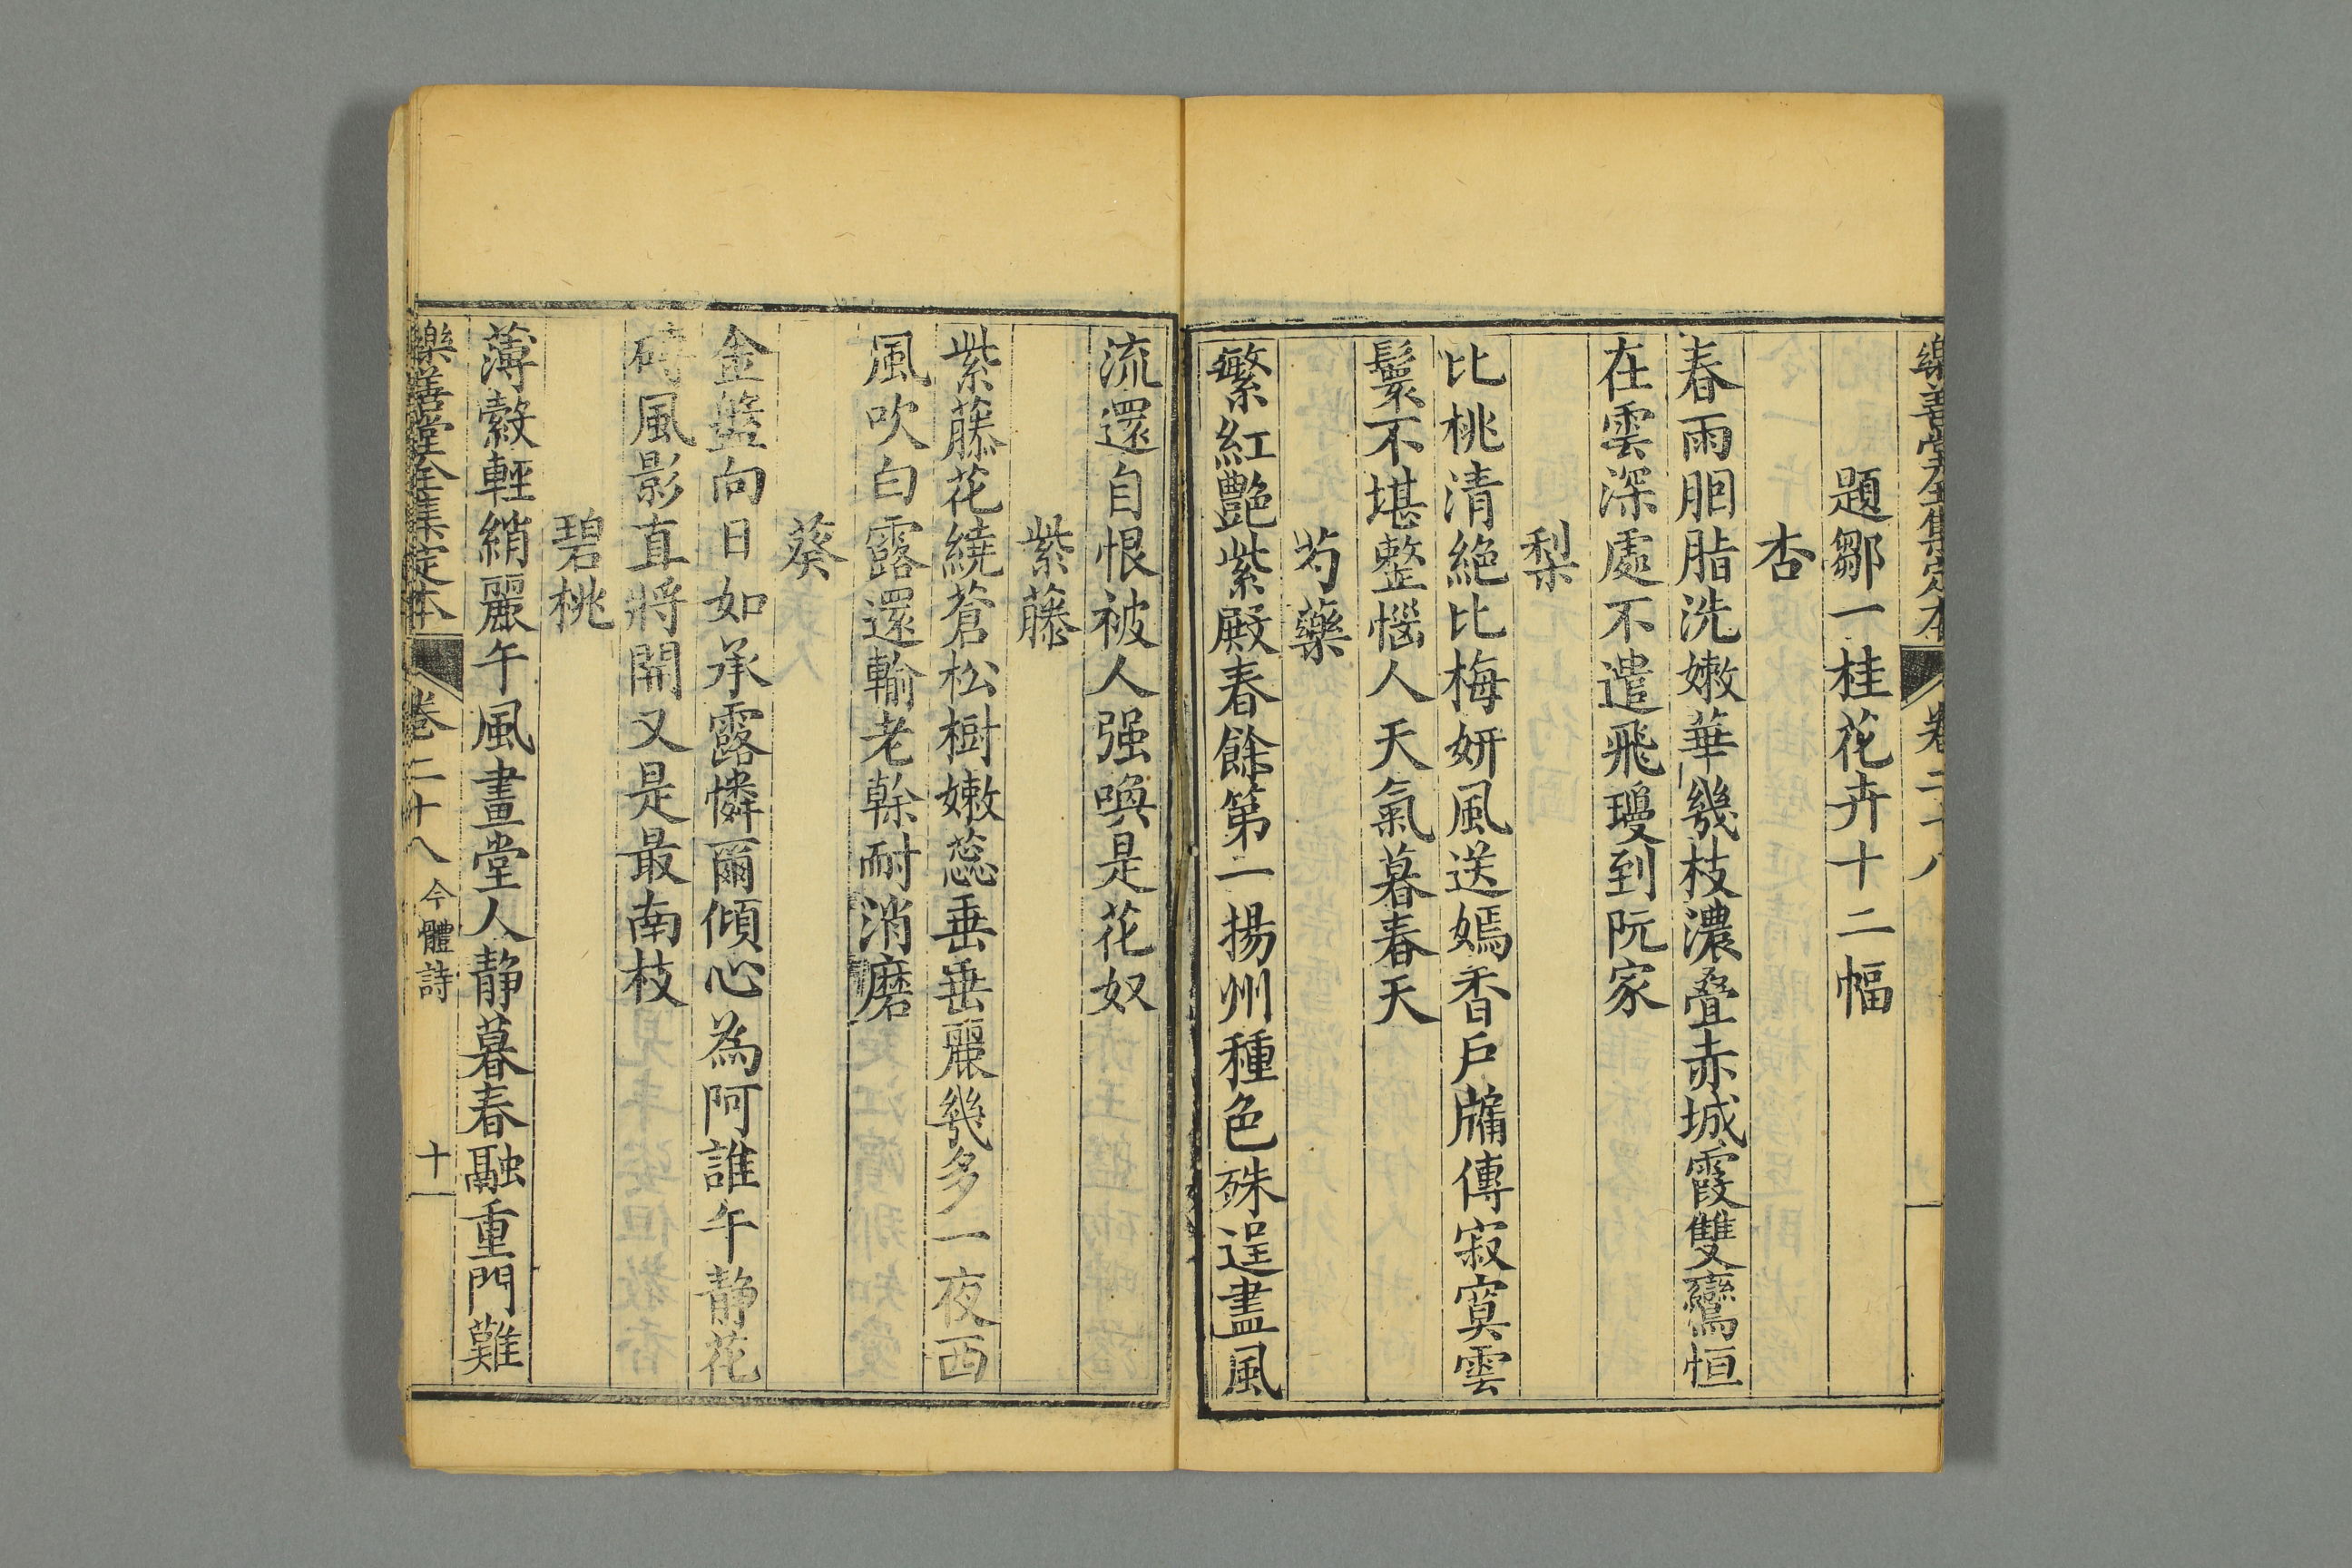 樂善堂全集定本 卷二十八
題鄒一桂花卉十二幅
杏
春雨胭脂洗嫩華幾枝濃疊赤城霞雙鸞恒
在雲深處不遣飛瓊到阮家
梨
比桃清絕比梅妍風送嫣香戶牖傳寂寞雲
鬟不堪整惱人天氣暮春天
芍藥
繁紅艷紫殿春餘第二揚州種色殊逞盡風
流還自恨被人强喚是花奴
紫藤
紫藤花繞蒼松樹嫩蕊垂垂麗幾多一夜西
風吹白露還輸老榦耐消磨
葵
金盤向日如承露憐爾傾心為阿誰午静花
磚風影直將開又是最南枝
碧桃
薄縠輕綃麗午風畫堂人静暮春融重門難
樂善堂全集定本 卷二十八 今體詩 十一